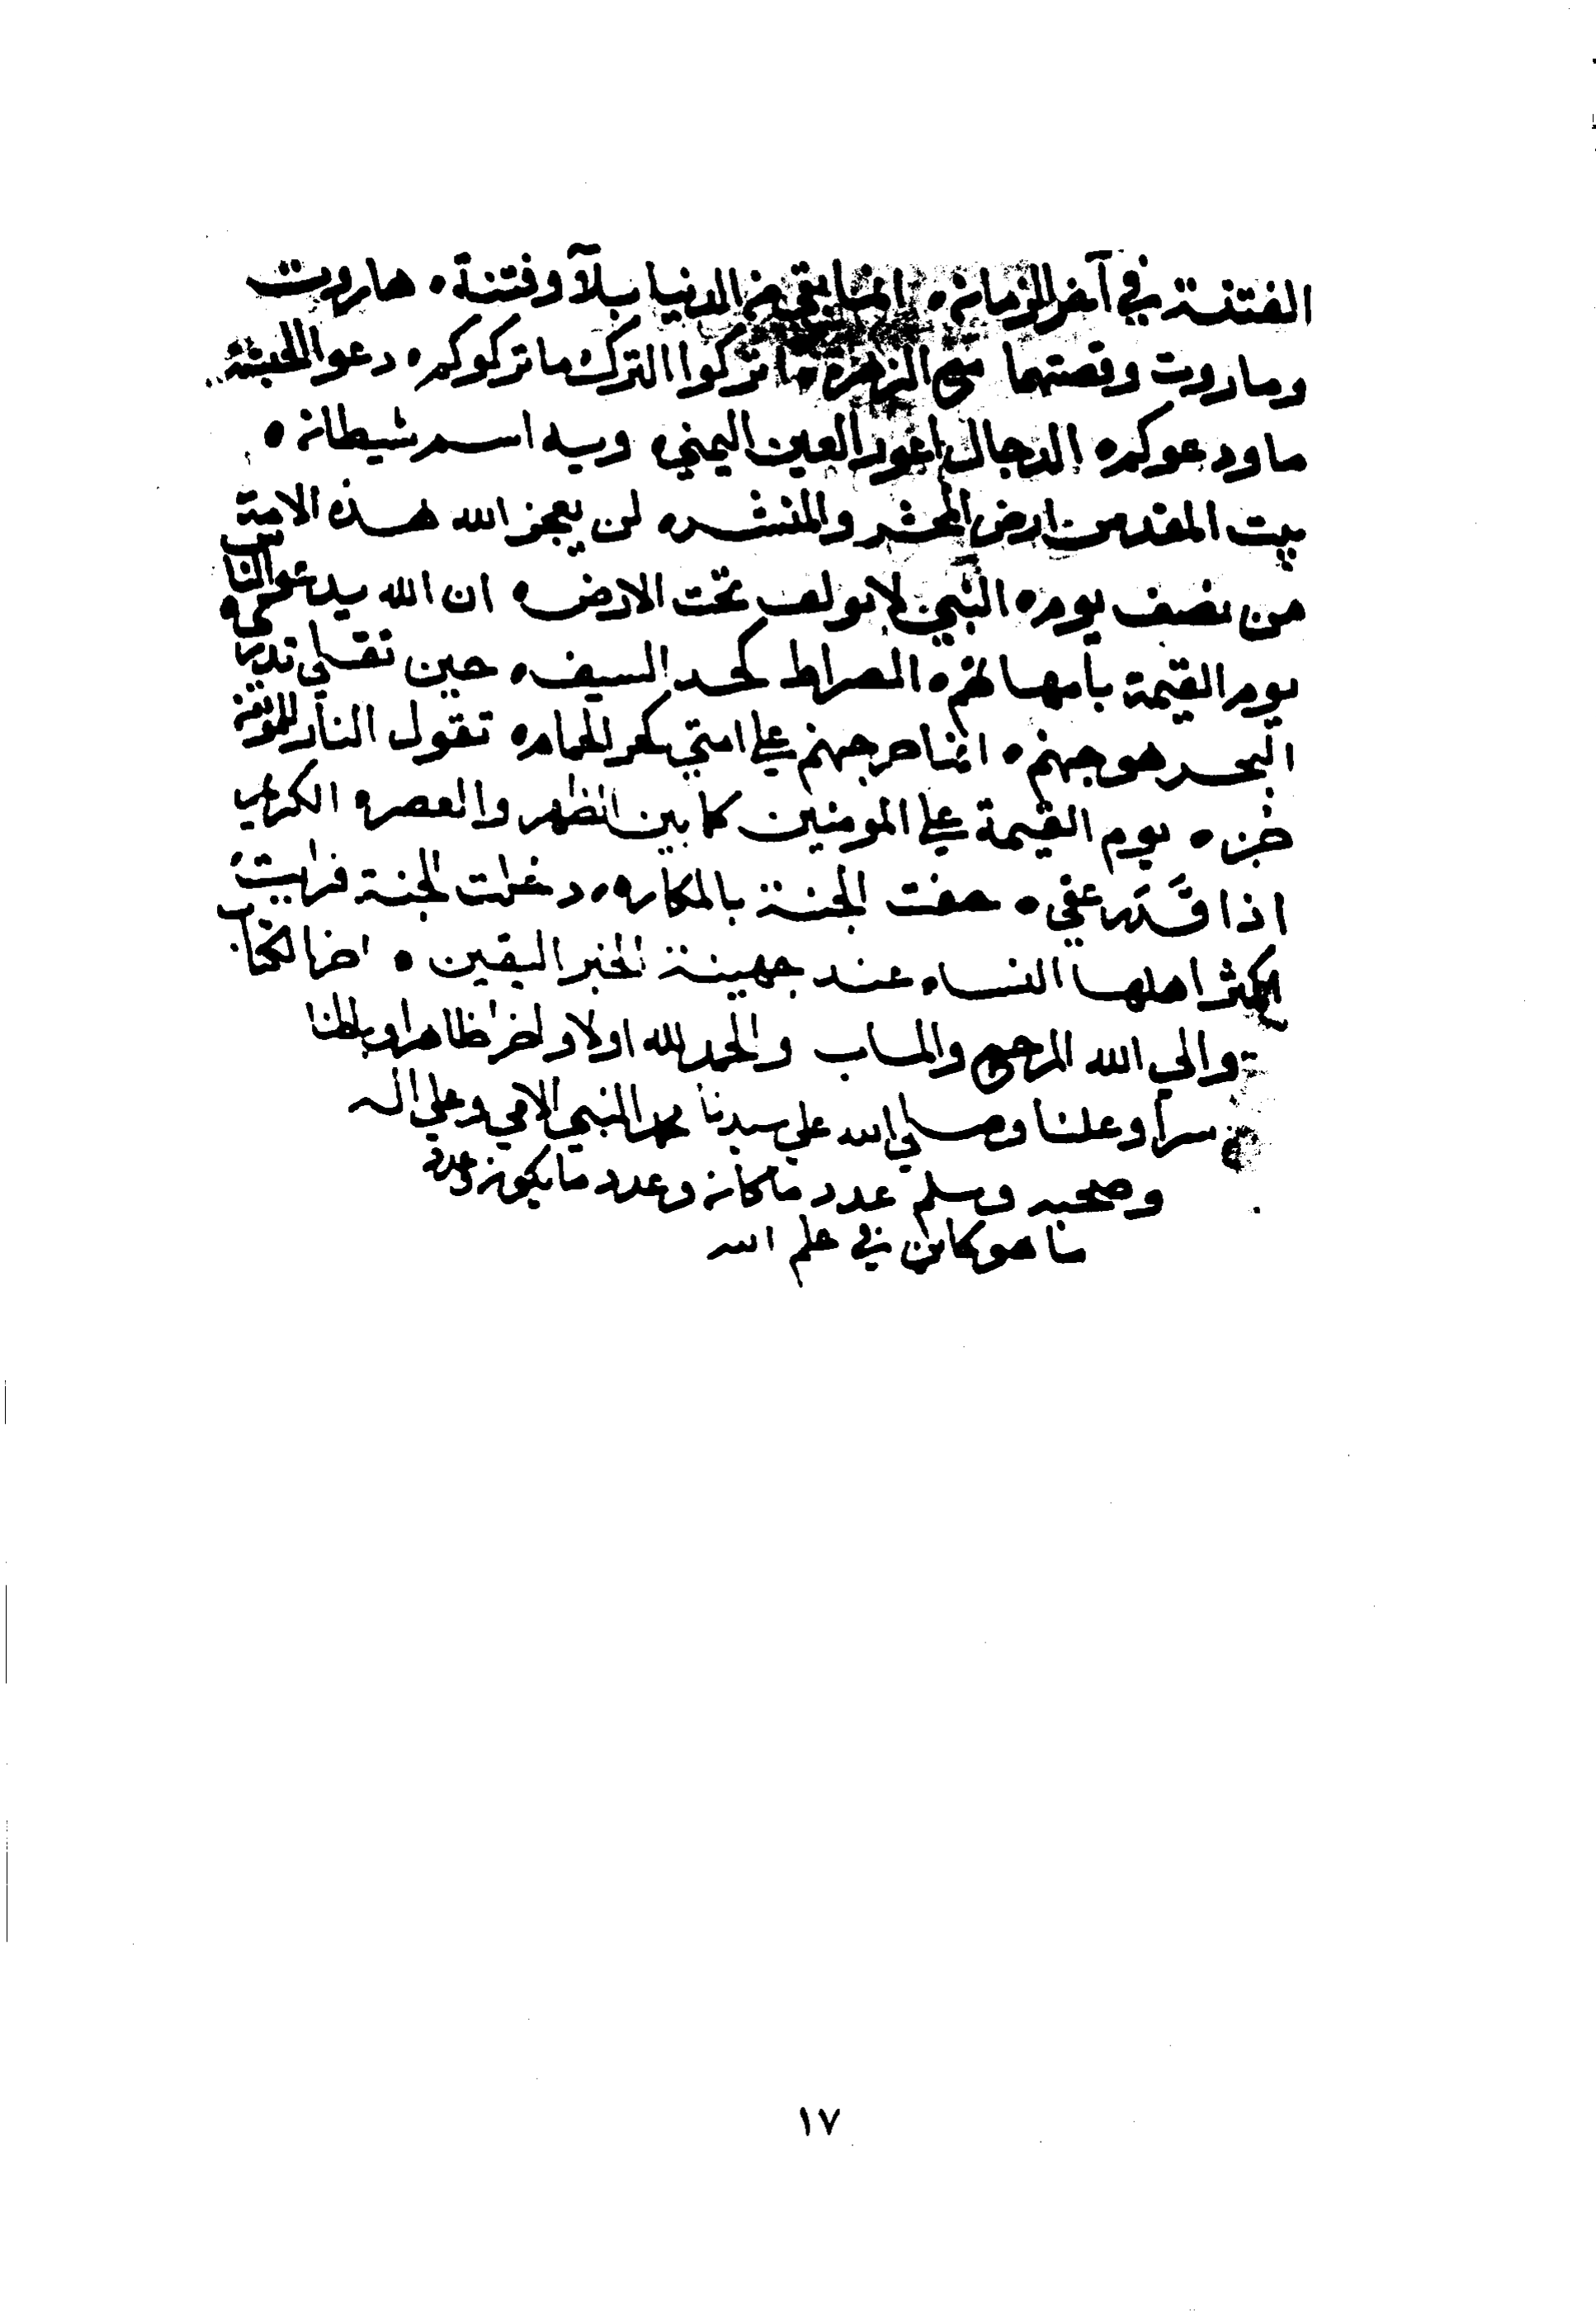 الفتنة في آخر الزمان ه انما بقي من الدنيا بلآ وفتنة ه هاروت
وماروت وقصتهما مع الزهرة ه اتركوا الترك ما تركوكم ه دعوا الحبشة
ما ودعوكم ه الدجال اعور العين اليمني ه ويه اسم شيطان ه
بيت المقدس ارض المحشر والمنشر ه لن يعجز الله هذه الامة
من نصف يوم ه النبي لا يولف تحت الارض ه ان الله يدعو الناس
يوم القيمة بامهاتهم ه الصراط كحد السيف ه حين تقلى تدري ه
البحر هو جهنم ه انما حر جهنم على امتي كحر الحمام ه تقول النار للمؤمن
جز ه يوم القيمة على المومنين كما بين الظهر والعصر ه الكريم
اذا قَدَر عفى ه حفت الجنة بالمكاره ه دخلت الجنة فرايت
اكثر اهلها النساء ه عند جهينة الخبر اليقين ه اخر الكتاب
والي الله المرجع والماب والحمد لله اولا واخرا ظاهرا وباطنا
سرا وعلنا وصلى الله على سيدنا محمد النبي الامي وعلى اله
وصحبه وسلم عدد ما كان وعدد ما يكون وعدد
ما هو كائن في علم الله
١٧